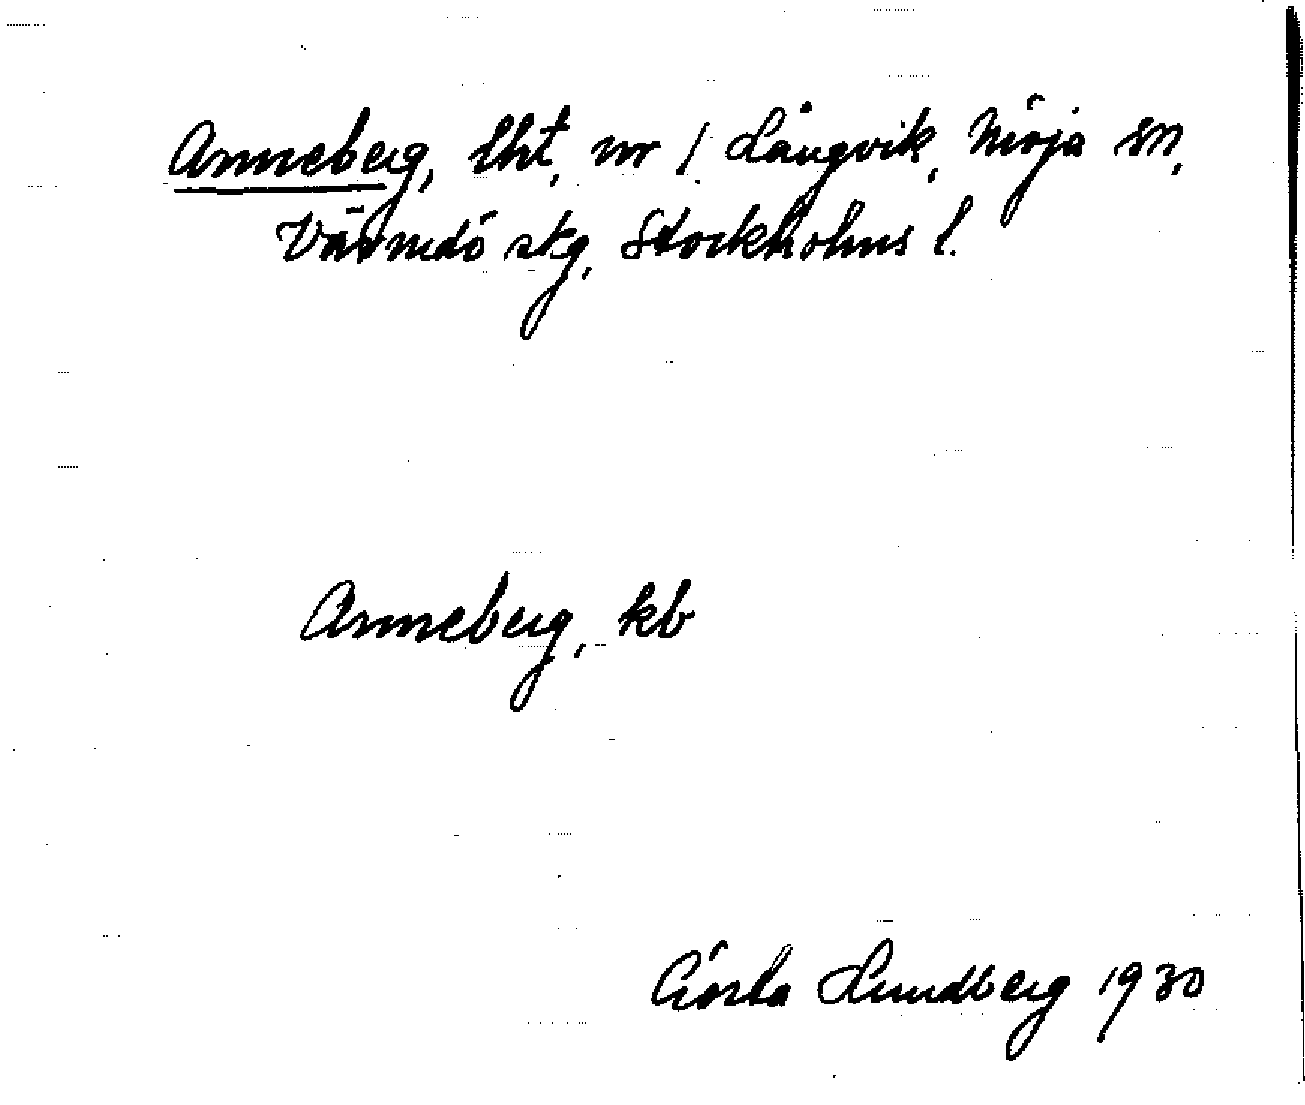 Anneberg, lht, nr 1 Långvik, Möja sn,
Värmdö skg, Stockholms l.
Anneberg, kb
Gösta Lundberg 1930